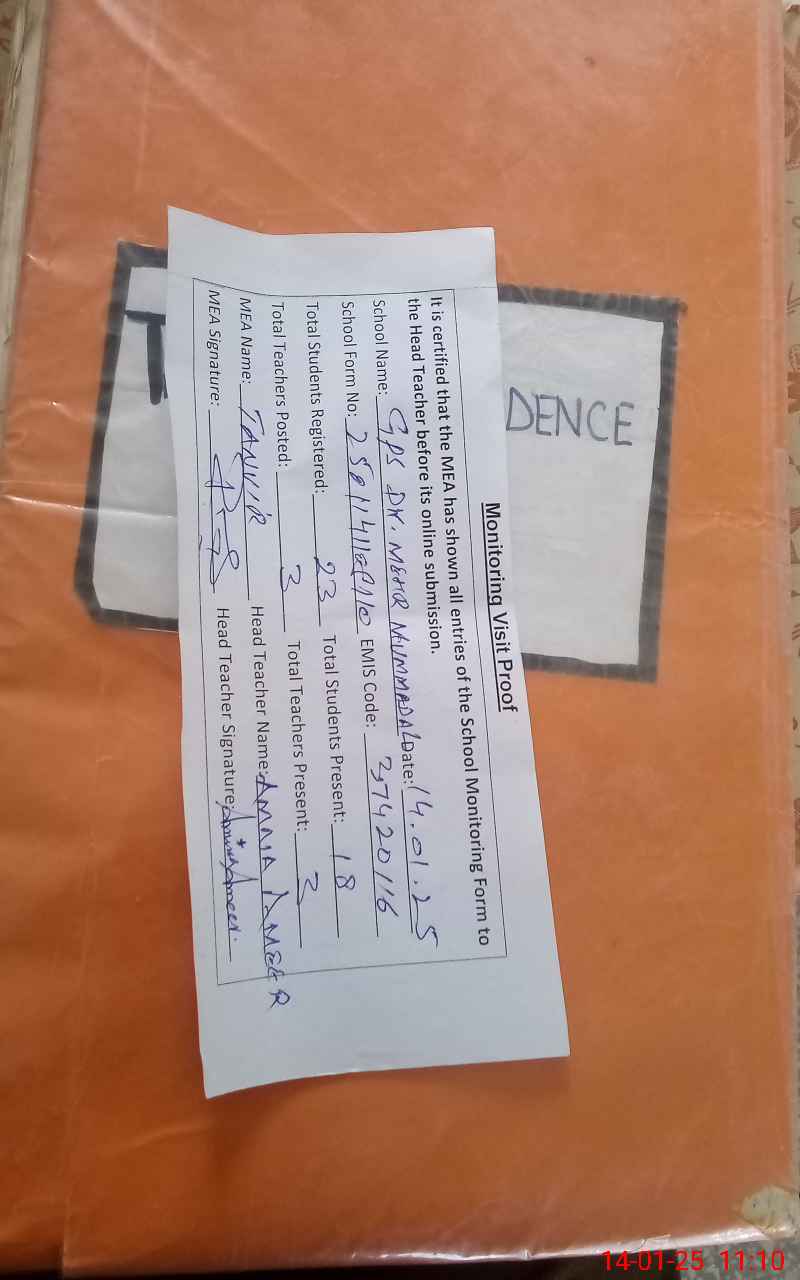 DENCE
Monitoring Visit Proof
It is certified that the MEA has shown all entries of the School Monitoring Form to
the Head Teacher before its online submission.
School Name: GPS DK. MEHR MUMMADAL Date: 14.01.25
School Form No: EMIS Code: 37420116
Total Students Registered: 23 Total Students Present: 18
Total Teachers Posted: 3 Total Teachers Present: 3
MEA Name: TANVIR Head Teacher Name: AMNA AMEER
MEA Signature: Head Teacher Signature: Amna Ameer.
14-01-25 11:10